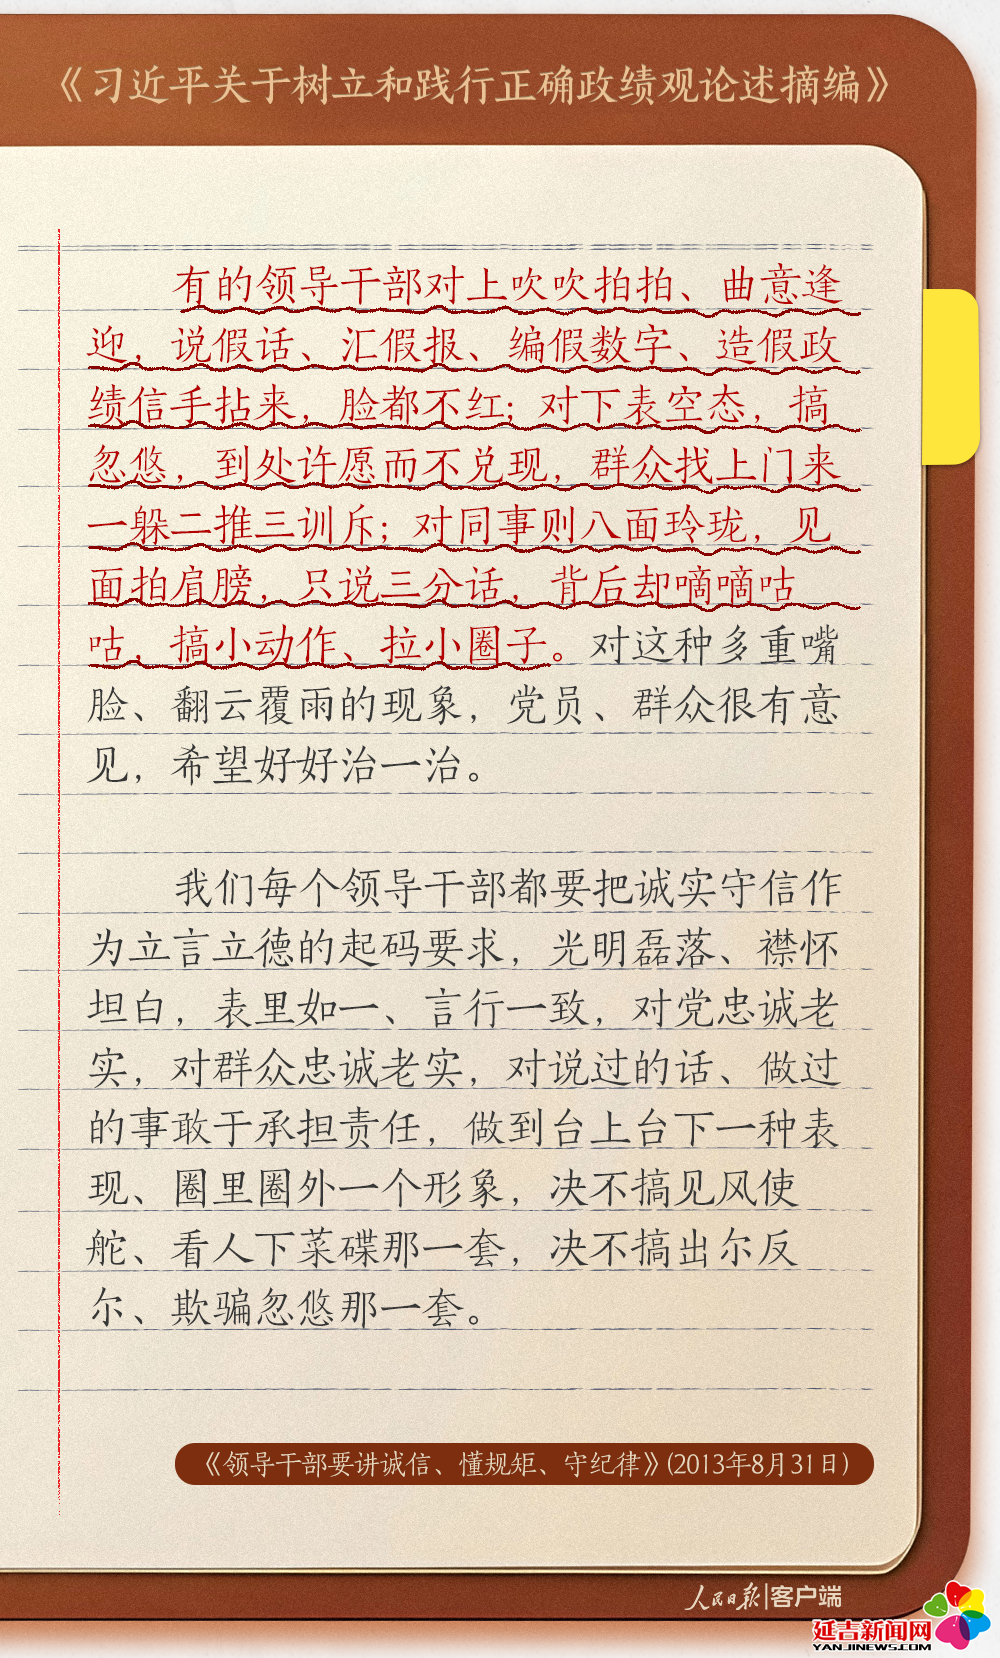 《习近平关于树立和践行正确政绩观论述摘编》
有的领导干部对上吹吹拍拍、曲意逢
迎，说假话、汇假报、编假数字、造假政
绩信手拈来，脸都不红；对下表空态，搞
忽悠，到处许愿而不兑现，群众找上门来
一躲二推三训斥；对同事则八面玲珑，见
面拍肩膀，只说三分话，背后却嘀嘀咕
咕，搞小动作、拉小圈子。对这种多重嘴
脸、翻云覆雨的现象，党员、群众很有意
见，希望好好治一治。
我们每个领导干部都要把诚实守信作
为立言立德的起码要求，光明磊落、襟怀
坦白，表里如一、言行一致，对党忠诚老
实，对群众忠诚老实，对说过的话、做过
的事敢于承担责任，做到台上台下一种表
现、圈里圈外一个形象，决不搞见风使
舵、看人下菜碟那一套，决不搞出尔反
尔、欺骗忽悠那一套。
《领导干部要讲诚信、懂规矩、守纪律》(2013年8月31日)
人民日报|客户端
延吉新闻网
YANJINEWS.COM